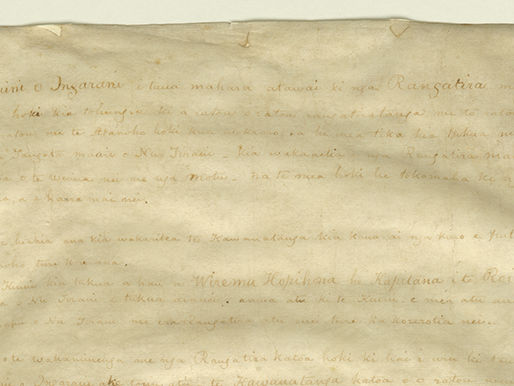 o Ingarani i tana mahara atawai ki nga Rangatira
hoki kia tohungia ki a ratou o ratou rangatiratanga me to
me te Atanoho hoki kua wakaaro ia he mea tika kia tukua
Tangata maori o Nu Tirani - kia wakaaetia e nga Rangatira
o te Wenua nei me nga Motu - na te mea hoki he tokomaha ke
a e haere mai nei.
hiahia ana kia wakaritea te Kawanatanga kia kaua ai nga kino e
noho ture kore ana.
Kuini kia tukua a hau a Wiremu Hopihona he Kapitana i te
o Nu Tirani e tukua aianei, amua atu ki te Kuini e mea atu
o Nu Tirani me era Rangatira atu enei ture ka korerotia nei.
o te wakaminenga me nga Rangatira katoa hoki ki hai i uru ki
o Ingarani ake tonu atu te Kawanatanga katoa o o ratou